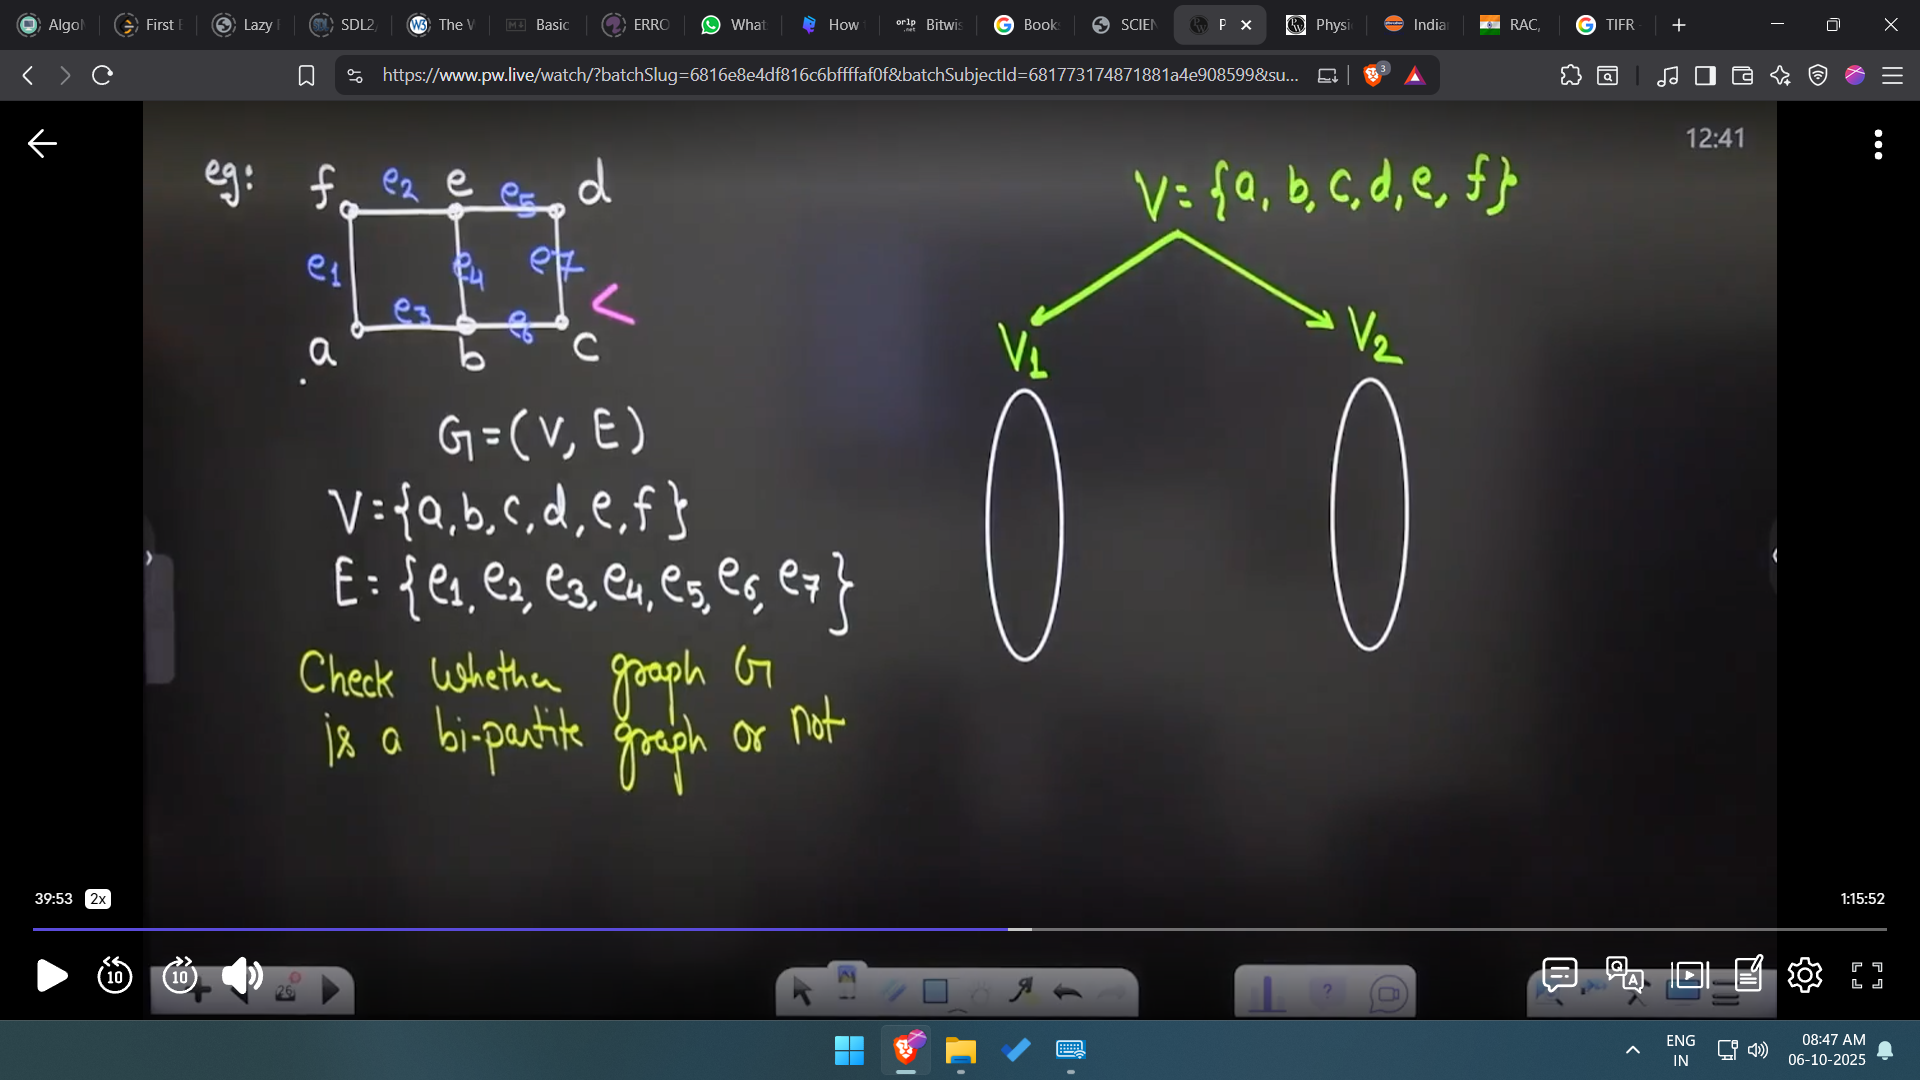 Algo
First
Lazy
SDL2
The
Basic
ERRO
What
How
Bitwi
Book
SCIEN
P
Physi
India
RAC,
TIFR
https://www.pw.live/watch/?batchSlug=6816e8e4df816c6bffffaf0f&batchSubjectId=681773174871881a4e908599&su...
3
12:41
eg:
f e2 e e5 d
e1 e4 e7
e3 e6
a b c
<
G=(V, E)
V={a,b,c,d,e,f}
E={e1,e2,e3,e4,e5,e6,e7}
Check whether graph G
is a bi-partite graph or not
V={a,b,c,d,e,f}
V1 V2
39:53 2x
1:15:52
10 10
26
?
ENG
IN
08:47 AM
06-10-2025